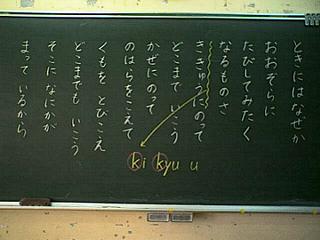 ときにはなぜか
おおぞらに
たびしてみたく
なるものさ
ききゅうにのって
どこまで いこう
かぜにのって
のはらをこえて
くもを とびこえ
どこまでも いこう
そこに なにかが
まって いるから
ki kyu u